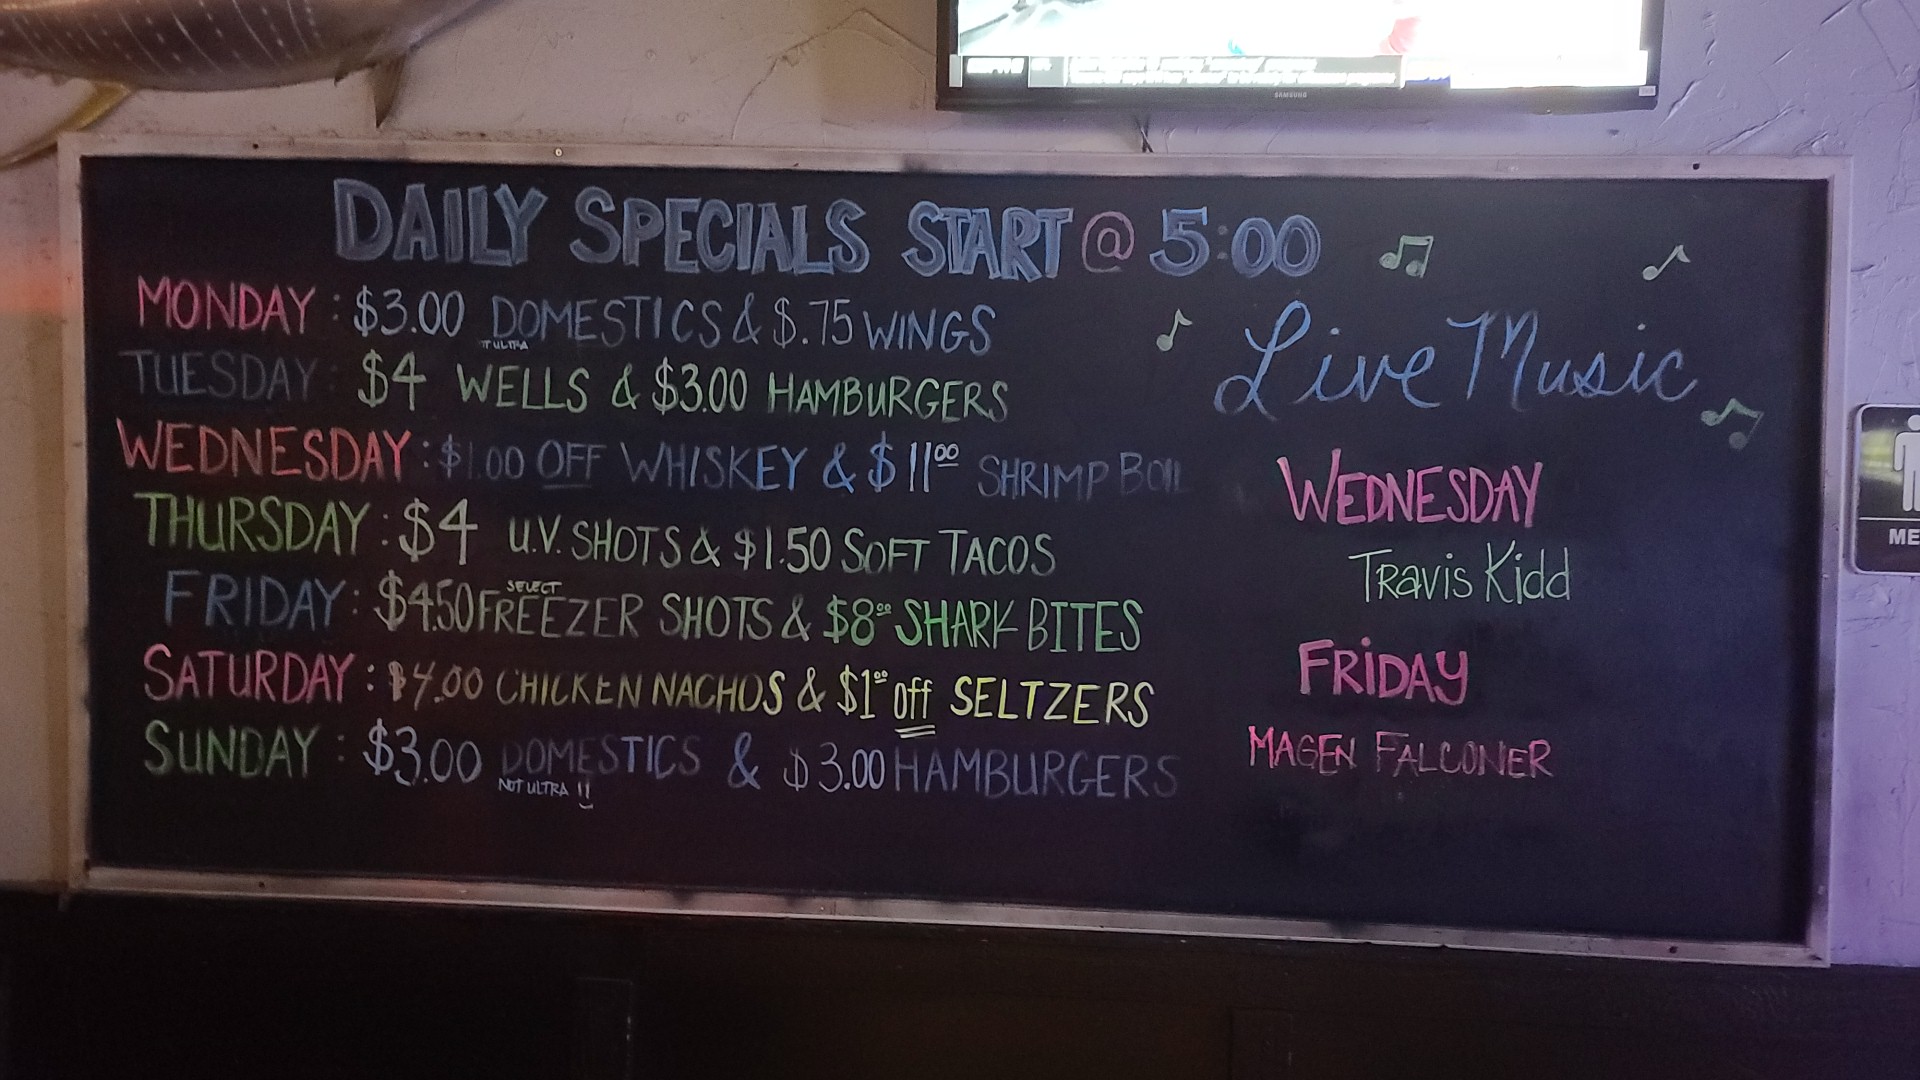 SAMSUNG
DAILY SPECIALS START @ 5:00
MONDAY : $3.00 DOMESTICS & $.75 WINGS
ULTRA
TUESDAY : $4 WELLS & $3.00 HAMBURGERS
WEDNESDAY : $1.00 OFF WHISKEY & $1100 SHRIMP BOIL
THURSDAY : $4 U.V. SHOTS & $1.50 SOFT TACOS
SELECT
FRIDAY : $4.50 FREEZER SHOTS & $800 SHARK BITES
SATURDAY : $4.00 CHICKEN NACHOS & $100 off SELTZERS
SUNDAY : $3.00 DOMESTICS & $3.00 HAMBURGERS
NOT ULTRA !!
Live Music
WEDNESDAY
Travis Kidd
FRiDAY
MAGEN FALCONER
ME